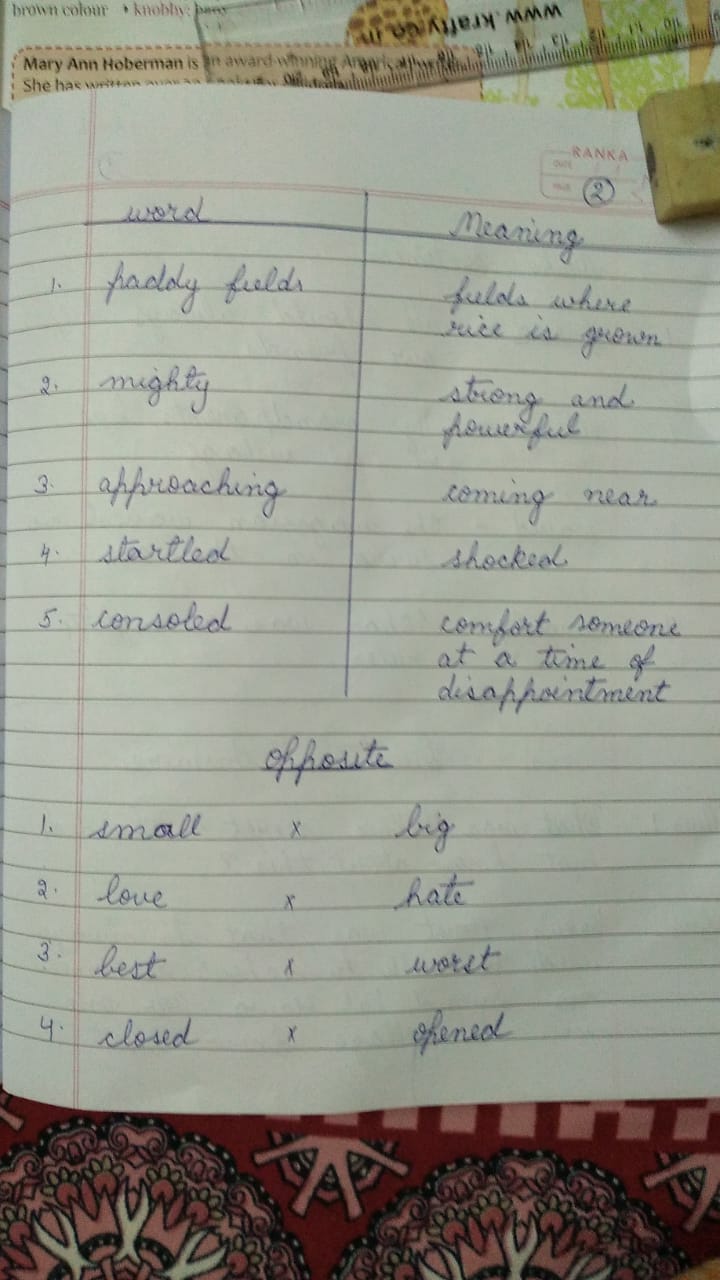 brown colour • knobby:
www.krafty.co.in
Mary Ann Hoberman is an award-winning
She has written
RANKA
DATE
PAGE 2
word Meaning
1. paddy fields fields where
rice is grown
2. mighty strong and
powerful
3. approaching coming near
4. startled shocked
5. consoled comfort someone
at a time of
disappointment
opposite
1. small x big
2. love x hate
3. best x worst
4. closed x opened